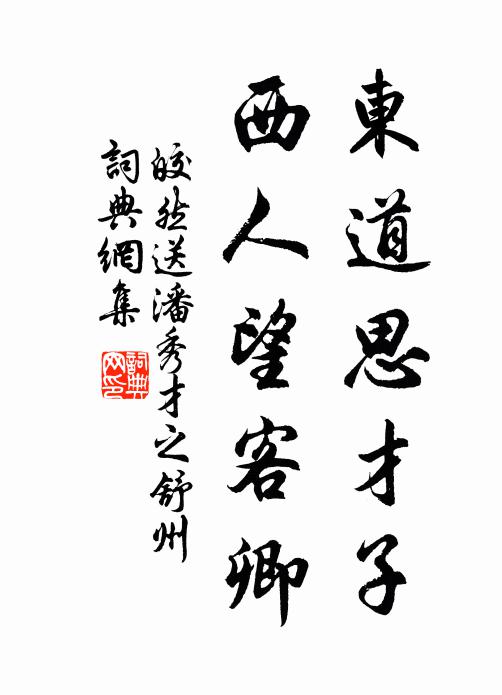 東道思才子
西人望客卿
皎然送潘秀才之舒州
詞典網集
詞典網印